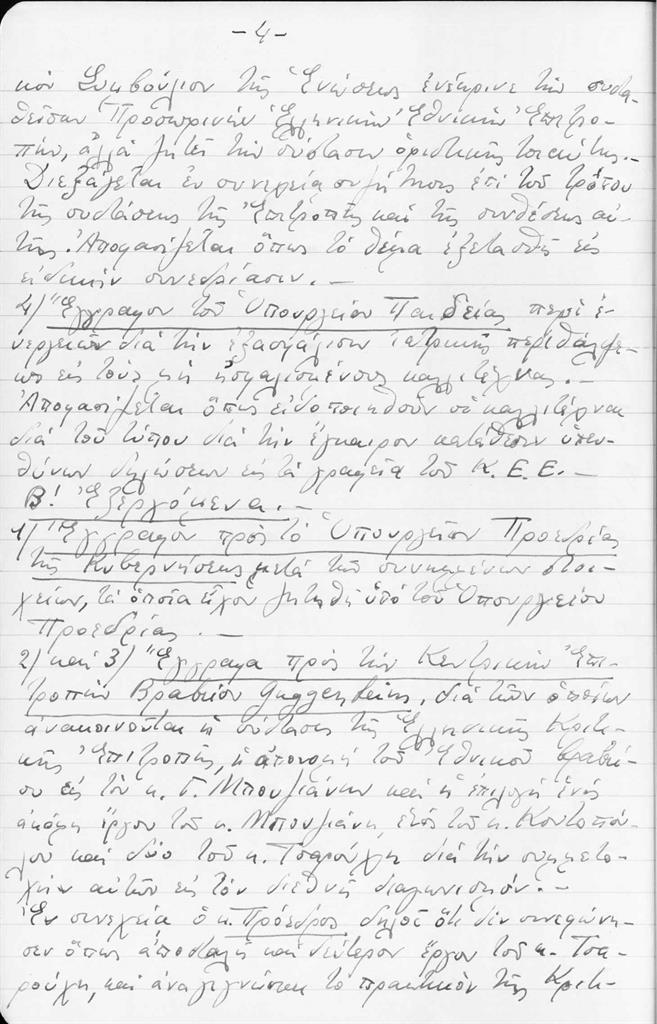 -4-
κὸν Συμβούλιον τῆς Ἑνώσεως ἐνέκρινε τὴν συστα-
θεῖσαν Προσωρινὴν Ἑλληνικὴν Ἐθνικὴν Ἐπιτρο-
πήν, ἀλλὰ ζητεῖ τὴν σύστασιν ὁριστικῆς τοιαύτης.-
Διεξάγεται ἐν συνεχείᾳ συζήτησις ἐπὶ τοῦ τρόπου
τῆς συστάσεως τῆς Ἐπιτροπῆς καὶ τῆς συνθέσεως αὐ-
τῆς. Ἀποφασίζεται ὅπως τὸ θέμα ἐξετασθῇ εἰς
εἰδικὴν συνεδρίασιν.-
4/ Ἔγγραφον τοῦ Ὑπουργείου Παιδείας περὶ ἐ-
νεργειῶν διὰ τὴν ἐξασφάλισιν ἰατρικῆς περιθάλψε-
ως εἰς τοὺς μὴ ἠσφαλισμένους καλλιτέχνας.-
Ἀποφασίζεται ὅπως εἰδοποιηθοῦν οἱ καλλιτέχναι
διὰ τοῦ τύπου διὰ τὴν ἔγκαιρον κατάθεσιν ὑπευ-
θύνων δηλώσεων εἰς τὰ γραφεῖα τοῦ Κ.Ε.Ε.-
Β! Ἐξερχόμενα.-
1/ Ἔγγραφον πρὸς τὸ Ὑπουργεῖον Προεδρίας
τῆς Κυβερνήσεως μετὰ τῶν συνημμένων στοι-
χείων, τὰ ὁποῖα εἶχον ζητηθῆ ὑπὸ τοῦ Ὑπουργείου
Προεδρίας.-
2/ καὶ 3/ Ἔγγραφα πρὸς τὴν Κεντρικὴν Ἐπι-
τροπὴν Βραβείου Guggenheim, διὰ τῶν ὁποίων
ἀνακοινοῦται ἡ σύστασις τῆς Ἑλληνικῆς Κριτι-
κῆς Ἐπιτροπῆς, ἡ ἀπονομὴ τοῦ Ἐθνικοῦ Βραβεί-
ου εἰς τὸν κ. Γ. Μπουζιάνην καὶ ἡ ἐπιλογὴ ἑνὸς
ἀκόμη ἔργου τοῦ κ. Μπουζιάνη, ἑνὸς τοῦ κ. Κοντοπού-
λου καὶ δύο τοῦ κ. Τσαρούχη διὰ τὴν συμμετο-
χὴν αὐτῶν εἰς τὸν διεθνῆ διαγωνισμόν.-
Ἐν συνεχείᾳ ὁ κ. Πρόεδρος δηλοῖ ὅτι δὲν συνεφώνη-
σεν ὅπως ἀποσταλῇ καὶ δεύτερον ἔργον τοῦ κ. Τσα-
ρούχη, καὶ ἀναγιγνώσκει τὸ πρακτικὸν τῆς Κριτι-